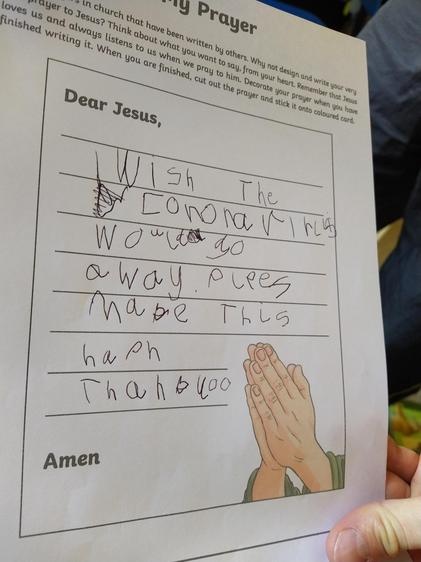 My Prayer
s in church that have been written by others. Why not design and write your very
prayer to Jesus? Think about what you want to say, from your heart. Remember that Jesus
loves us and always listens to us when we pray to him. Decorate your prayer when you have
finished writing it. When you are finished, cut out the prayer and stick it onto coloured card.
Dear Jesus,
I Wish The
Corona Viris
Would go
away. plees
make This
hapn
Thank yoo
Amen